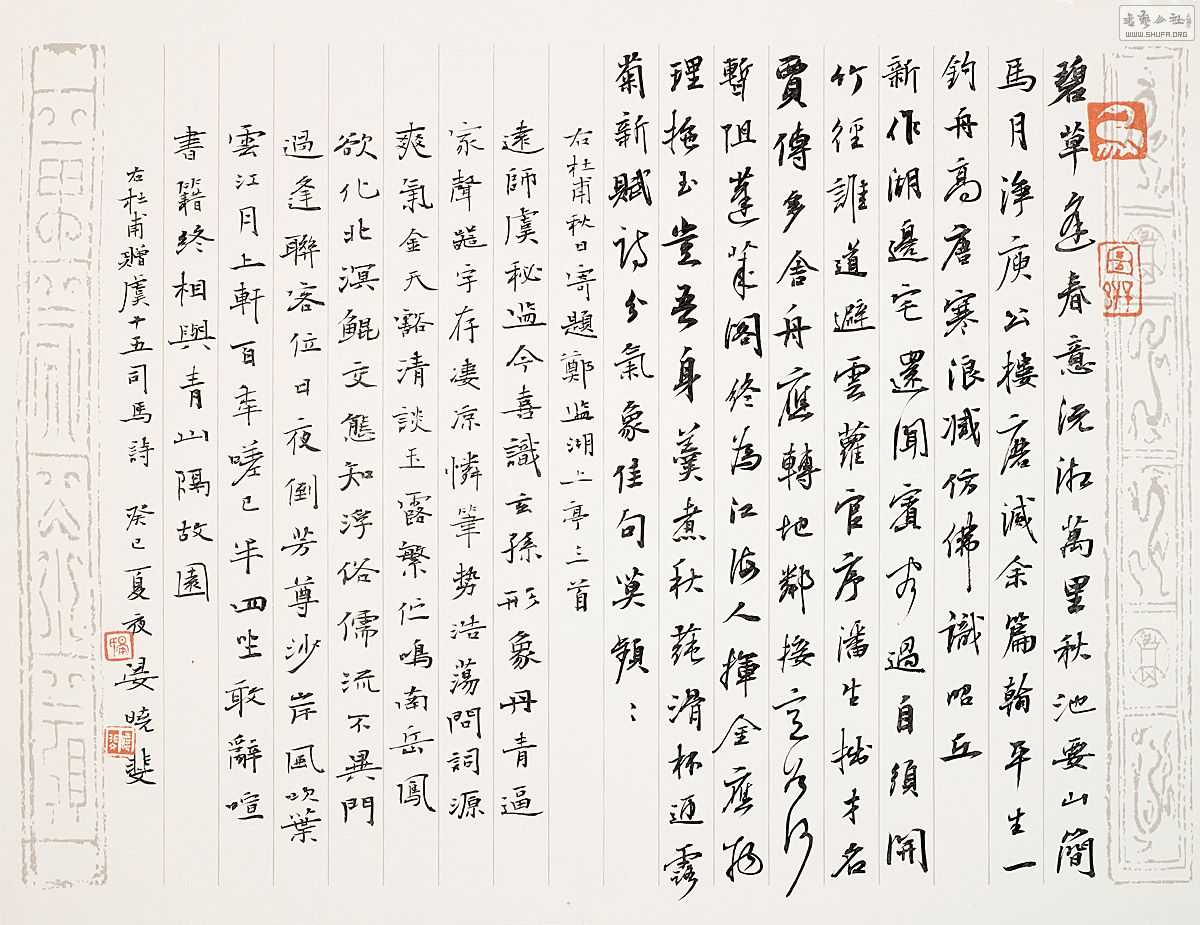 碧草逢春意沅湘萬里秋池要山簡
馬月淨庾公樓磨滅余篇翰平生一
釣舟高唐寒浪減仿佛識昭丘
新作湖邊宅還聞賓客過自須開
竹徑誰道避雲蘿官序潘生拙才名
賈傅多舍舟應轉地鄰接意如何
暫阻蓬萊閣終為江海人揮金應物
理拖玉豈吾身羹煮秋蓴滑杯迎露
菊新賦詩分氣象佳句莫頻〻
右杜甫秋日寄題鄭监湖上亭三首
遠師虞秘监今喜識玄孫形象丹青逼
家聲器宇存淒涼憐筆勢浩蕩問詞源
爽氣金天豁清談玉露繁伫鳴南岳鳳
欲化北溟鯤交態知浮俗儒流不異門
過逢聯客位日夜倒芳尊沙岸風吹葉
雲江月上軒百年嗟已半四坐敢辭喧
書籍終相與青山隔故園
右杜甫贈虞十五司馬詩 癸巳夏夜 晏曉斐
書藝公社
WWW.SHUFA.ORG